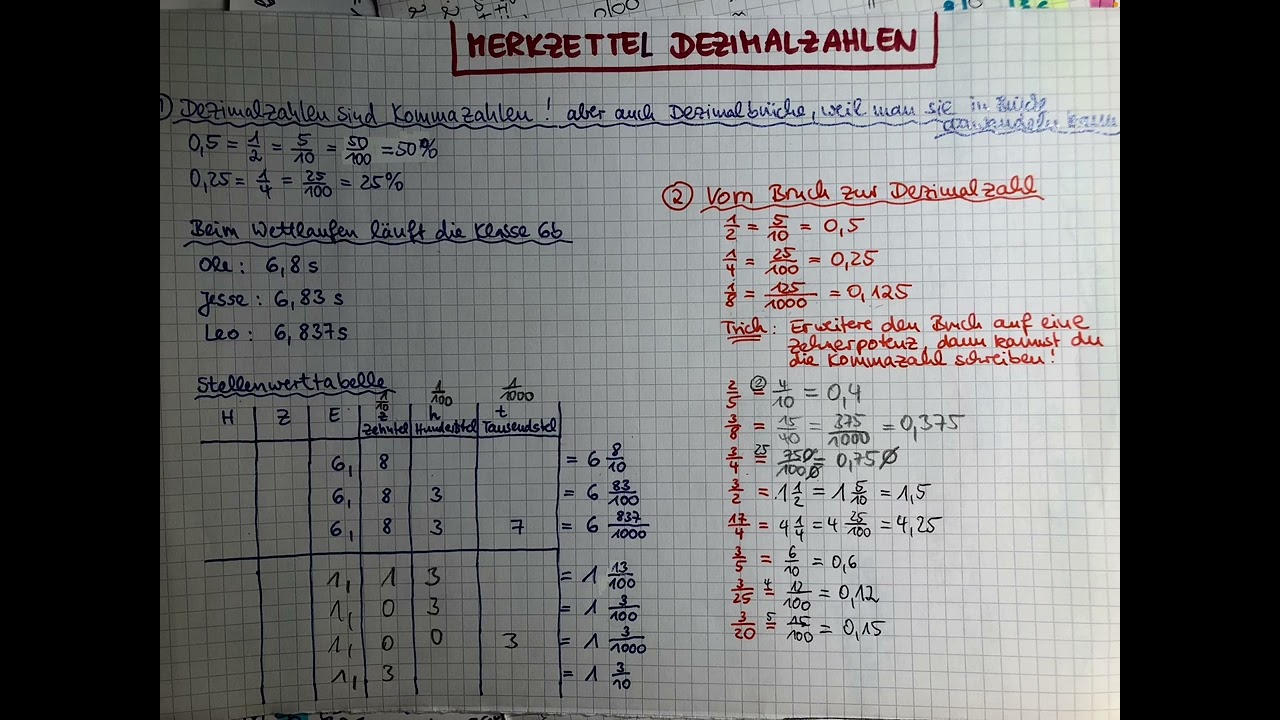 MERKZETTEL DEZIMALZAHLEN
1) Dezimalzahlen sind Kommazahlen! aber auch Dezimalbrüche, weil man sie in Brüche
umwandeln kann
0,5 = 1/2 = 5/10 = 50/100 = 50%
0,25 = 1/4 = 25/100 = 25%
Beim Wettlaufen läuft die Klasse 6b
Ole: 6,8 s
Jesse: 6,83 s
Leo: 6,837s
Stellenwerttabelle
1/10 1/100 1/1000
H Z E z h t
Zehntel Hundertstel Tausendstel
6, 8 = 6 8/10
6, 8 3 = 6 83/100
6, 8 3 7 = 6 837/1000
1, 1 3 = 1 13/100
1, 0 3 = 1 3/100
1, 0 0 3 = 1 3/1000
1, 3 = 1 3/10
2 Vom Bruch zur Dezimalzahl
1/2 = 5/10 = 0,5
1/4 = 25/100 = 0,25
1/8 = 125/1000 = 0,125
Trick: Erweitere den Bruch auf eine
Zehnerpotenz, dann kannst du
die Kommazahl schreiben!
2/5 =(2) 4/10 = 0,4
3/8 = 15/40 = 375/1000 = 0,375
3/4 =25 750/1000 = 0,750
3/2 = 1 1/2 = 1 5/10 = 1,5
17/4 = 4 1/4 = 4 25/100 = 4,25
3/5 = 6/10 = 0,6
3/25 =4 12/100 = 0,12
3/20 =5 15/100 = 0,15